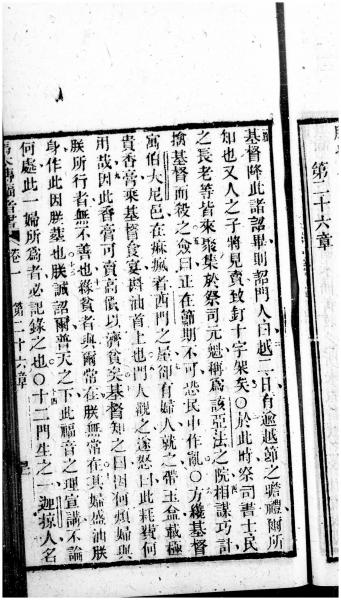 第二十六章
基督降此諸詔畢則詔門人曰越二日有逾越節之瞻禮爾所
知也又人之子將見賣致釘十字架矣○於此時祭司書士民
之長老等皆來聚集於祭司元魁稱爲該亞法之院相謀巧計
擒基督而殺之僉曰正在節期不可恐民中作亂○方纔基督
寓伯大尼邑在痲瘋者西門之屋卻有婦人就之帶玉盒載極
貴香膏乘基督食宴斟油首上也門人觀之遂怒曰此耗費何
用哉因此香膏可賣高價以濟貧矣基督知之曰因何煩婦與
朕所行者無不善也緣貧者與爾常在朕無常在其婦盛油朕
身作此因朕墓也朕誠詔爾普天之下此福音之理宣講不論
何處此一婦所爲者必記錄之也○十二門生之一迦掠人名
太傳福音書 卷一 第二十六章